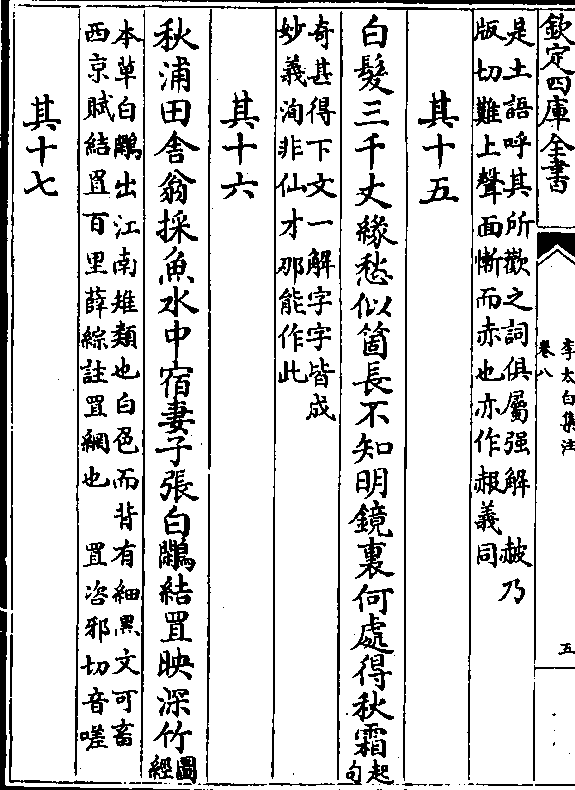 欽定四庫全書
李太白集注
卷八
五
是土語呼其所歡之詞俱屬强解　赧乃
版切難上聲面慚而赤也亦作赧義同
其十五
白髮三千丈緣愁似箇長不知明鏡裏何處得秋霜起句
奇甚得下文一解字字皆成
妙義洵非仙才那能作此
其十六
秋浦田舎翁採魚水中宿妻子張白鷴結罝映深竹圖經
本草白鷴出江南雉類也白色而背有細黑文可畜
西京賦結罝百里薛綜註罝網也　罝咨邪切音嗟
其十七